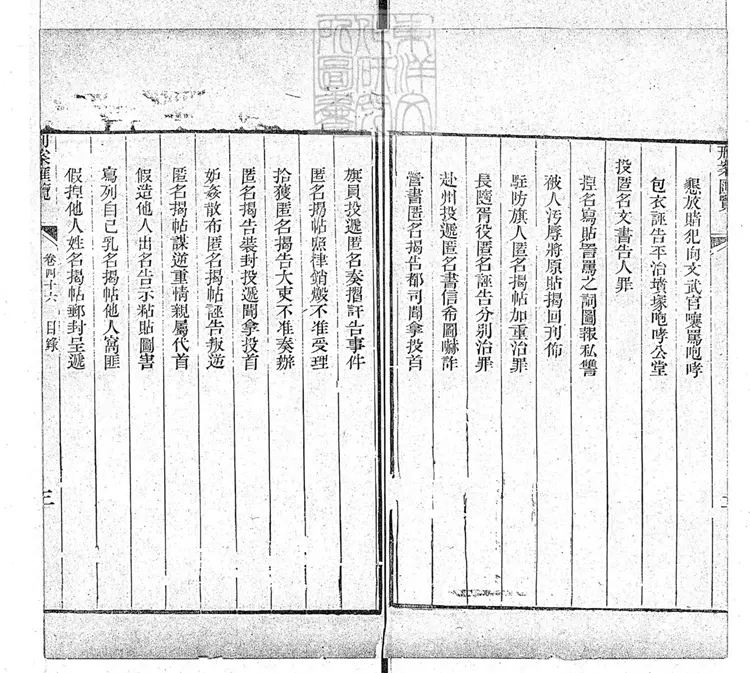 刑案匯覽
懇放賭犯向文武官嚷罵咆哮
包衣誣告平治墳塚咆哮公堂
投匿名文書告人罪
捏名寫貼詈罵之詞圖報私讐
被人污辱將原貼揭回刋佈
駐防旗人匿名揭帖加重治罪
長隨胥役匿名誣告分別治罪
赴州投遞匿名書信希圖嚇詐
營書匿名揭告都司聞拿投首
旗員投遞匿名奏摺訐告事件
匿名揭帖照律銷燬不准受理
拾獲匿名揭告大吏不准奏辦
匿名揭告裝封投遞聞拿投首
妒姦散布匿名揭帖誣告叛逆
匿名揭帖謀逆重情親屬代首
假造他人出名告示粘貼圖害
寫列自己乳名揭帖他人窩匪
假捏他人姓名揭帖郵封呈遞
刑案匯覽 卷四十六 目錄 三